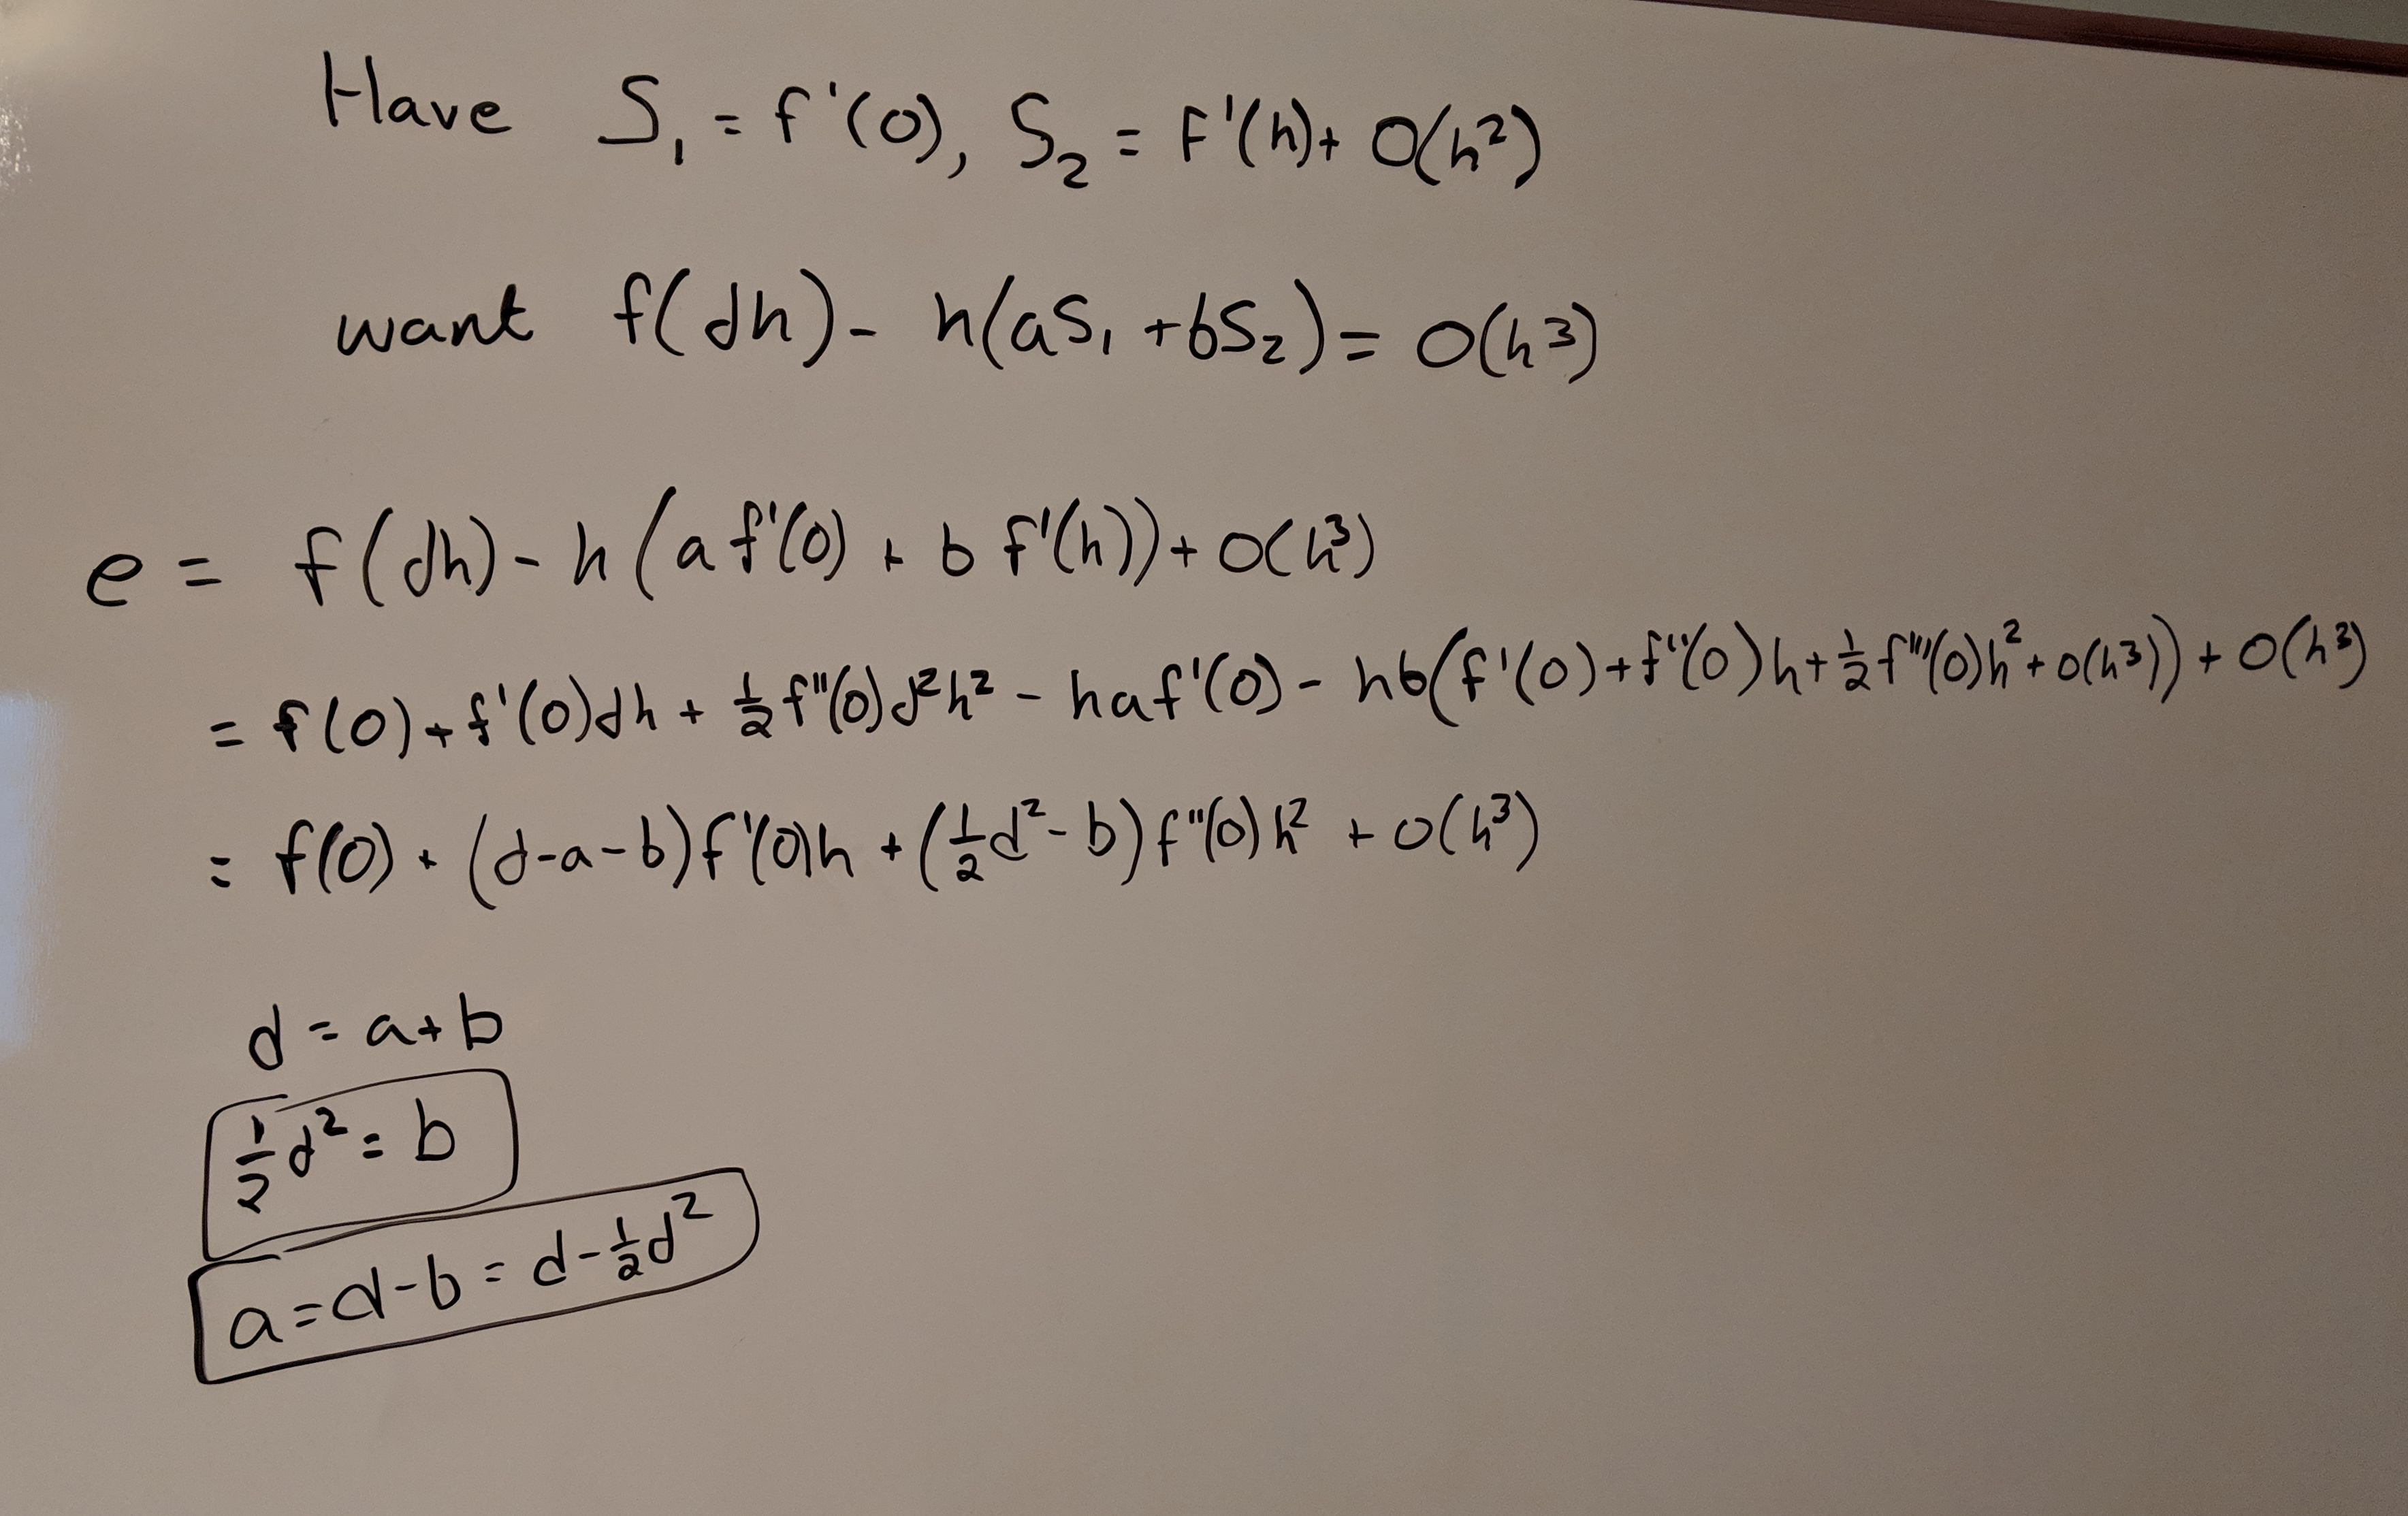 Have S₁ = f'(0), S₂ = F'(h) + O(h²)
want f(dh) - h(aS₁ + bS₂) = O(h³)
e = f(dh) - h(a f'(0) + b f'(h)) + O(h³)
= f(0) + f'(0)dh + ½ f''(0)d²h² - haf'(0) - hb(f'(0) + f''(0)h + ½ f'''(0)h² + O(h³)) + O(h³)
= f(0) + (d-a-b)f'(0)h + (½d² - b)f''(0)h² + O(h³)
d = a+b
½d² = b
a = d-b = d-½d²